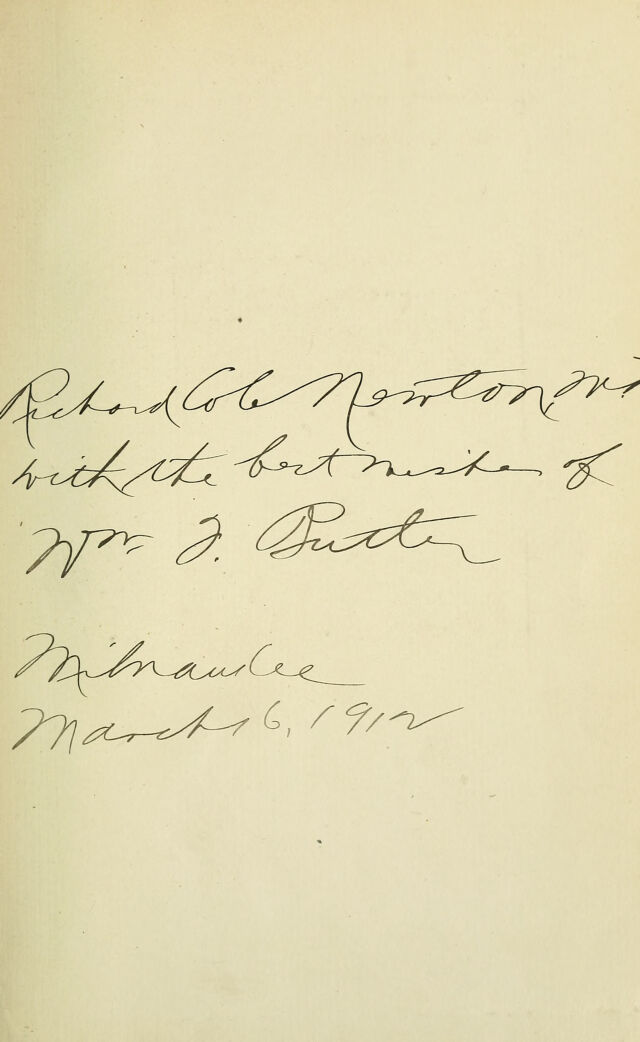 Richard Cole Newton, M.D
with the best wishes of
Wm. F. Butler
Milwaukee
March 16, 1912